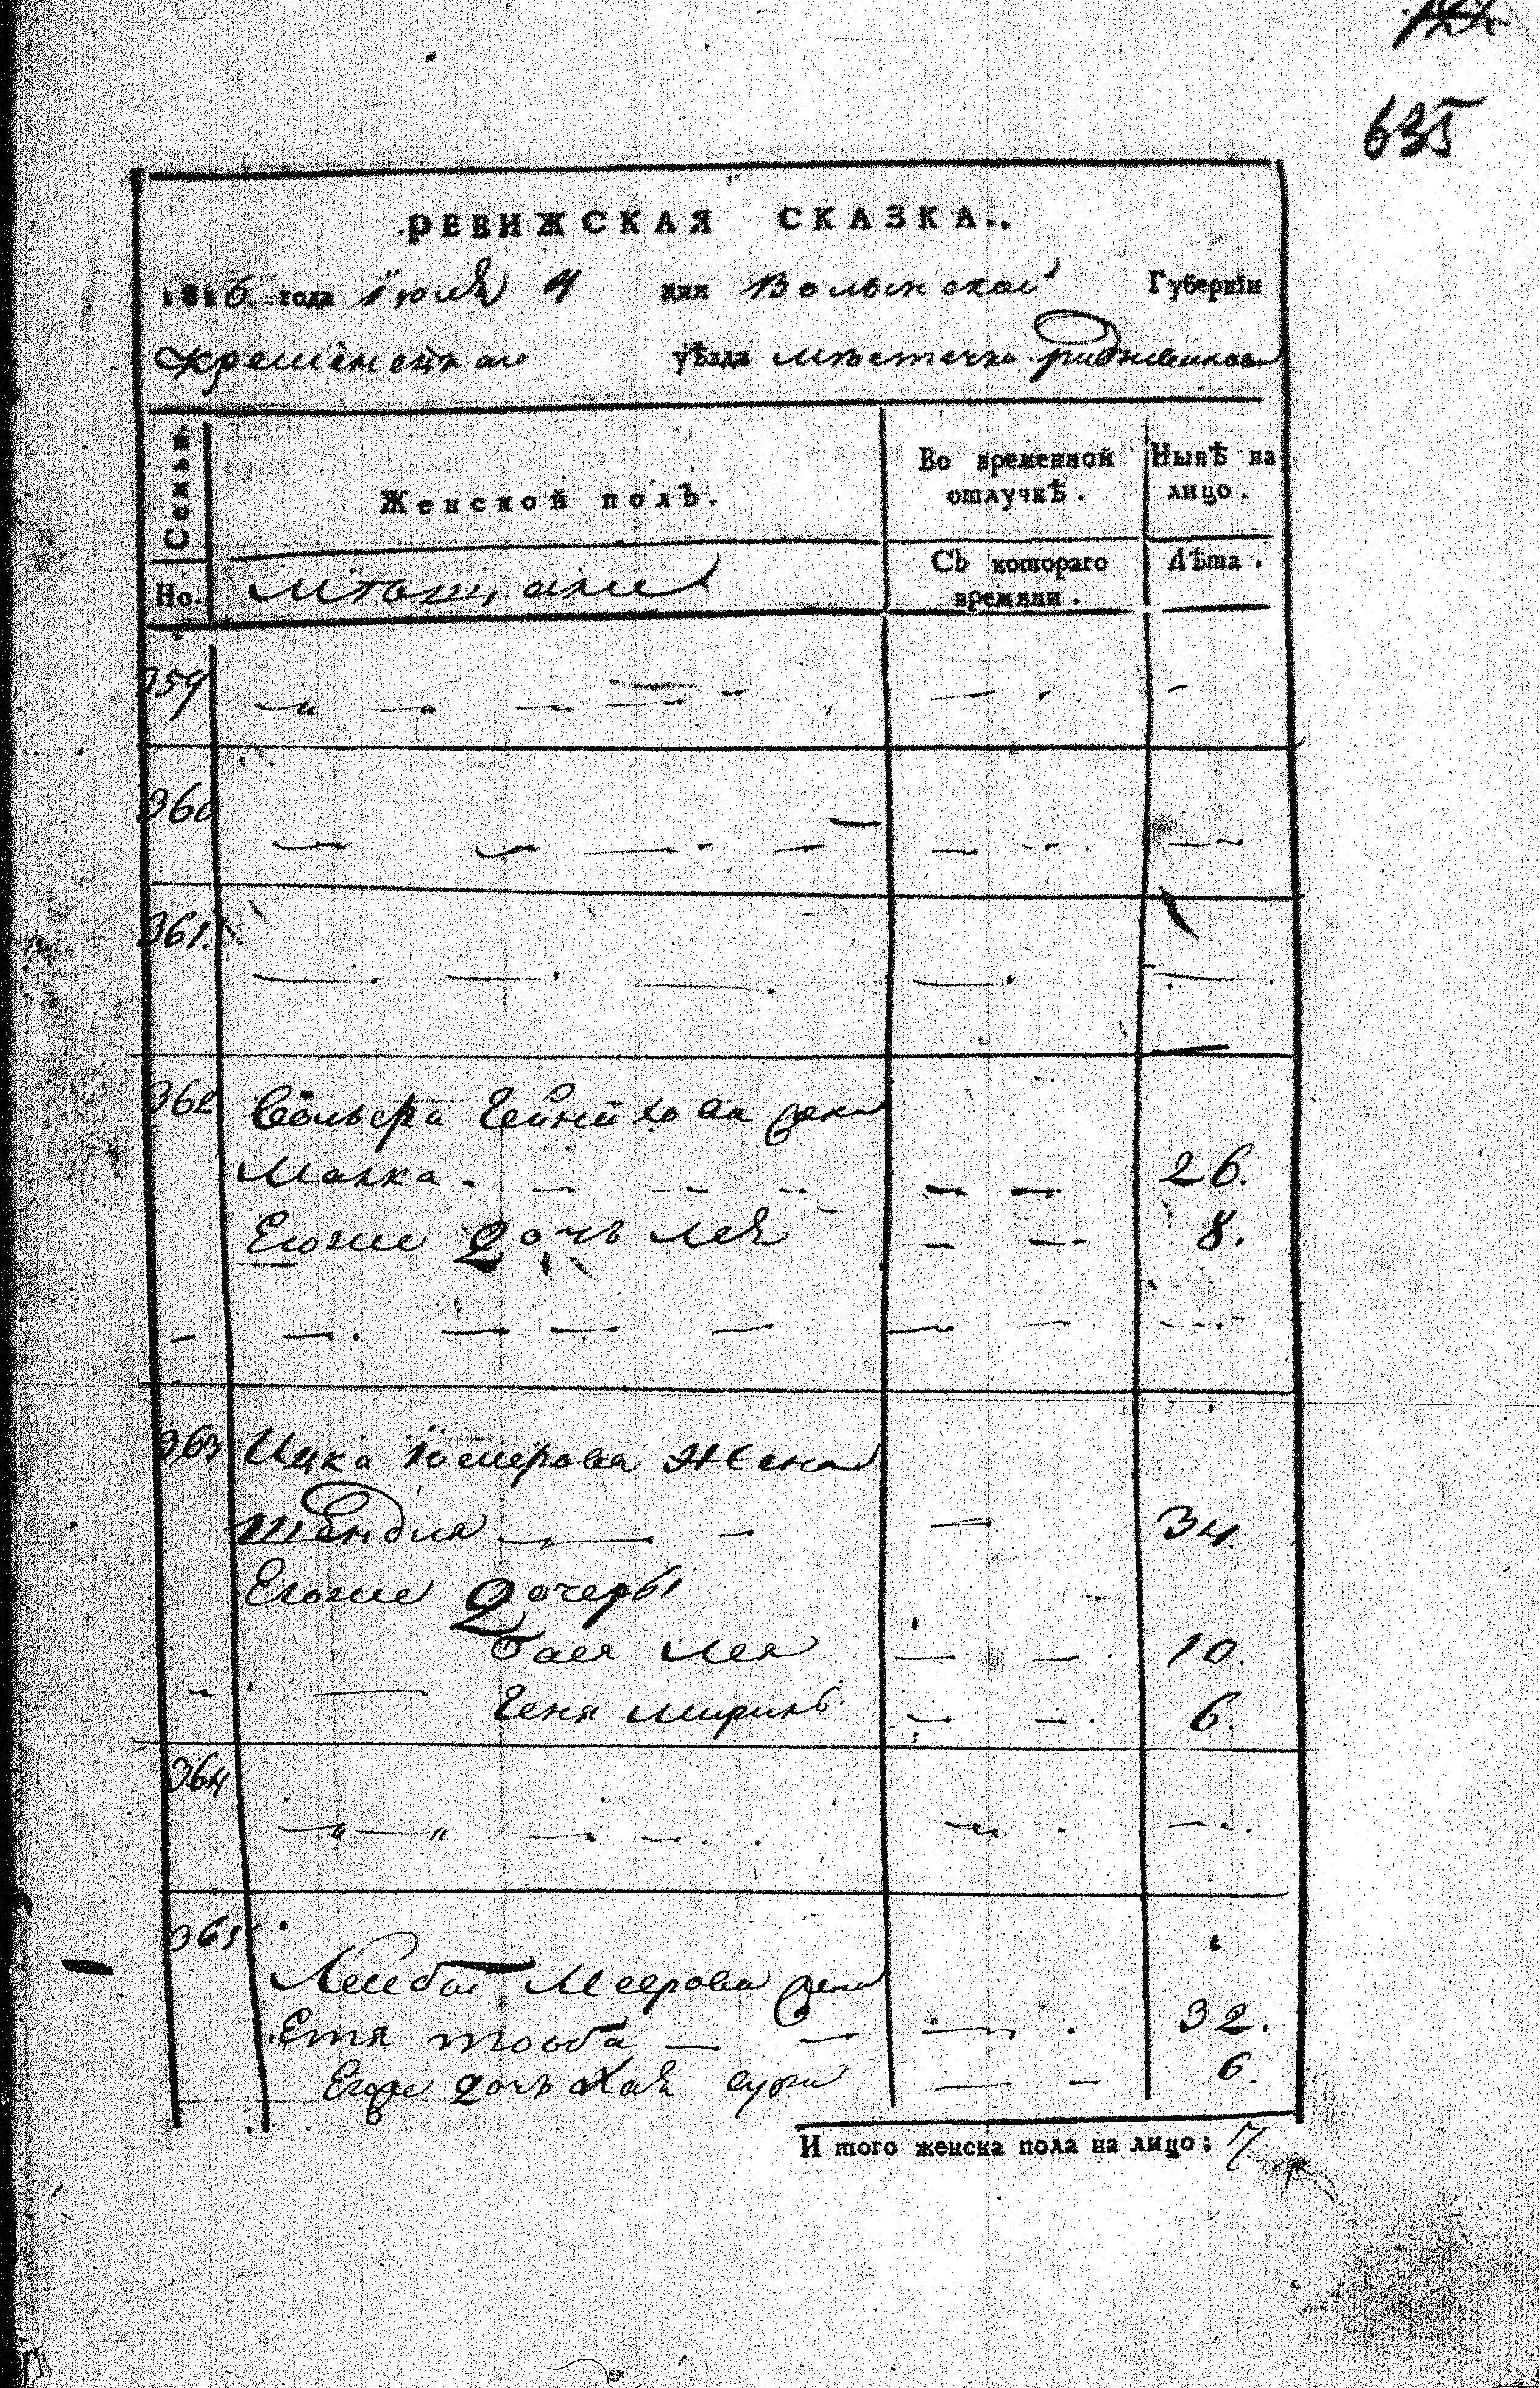 635
РЕВИЖСКАЯ СКАЗКА.
1816 года Июля 4 дня Волынской Губернїи
Кременецкаго уѣзда мѣстечка
Семьи. Женской полъ. Во временной отлучкѣ. Нынѣ на лицо.
Но. Мѣщане Съ котораго времяни. Лѣта.
359
360
361.
362 жена
Малка. 26.
Егоже дочь Лея 8.
363 Ицка жена
Шендля 34
Егоже дочеры
Бася Лея 10.
Геня 6.
364
365
Лейбы Меерова жена
Етя Тоъба 32.
Егоже дочь Хая Сура 6.
И того женска пола на лицо: 7